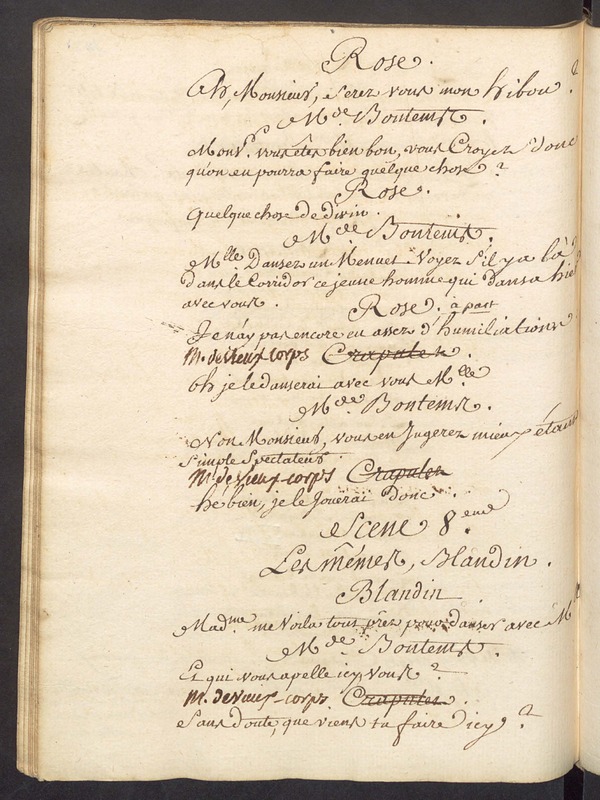 Rose.
Ah, Monsieur, serez vous mon hibou ?
Mde. Bontems.
Monsr. vous êtes bien bon, vous Croyez donc
qu'on en pourra faire quelque chose ?
Rose.
quelque chose de divin.
Mde Bontems.
Mlle. Dansez un Menuet. Voyez s'il y a là
dans le Corridor ce jeune homme qui dansa hier
avec vous.
Rose. à part
Je n'ay pas encore eu assez d'humiliations
M. de vieux corps Crapulen.
Oh je le danserai avec vous Mlle.
Mde. Bontems.
Non Monsieur, vous en Jugerez mieux étant
simple Spectateur.
M. de vieux-corps Crapulen
hé bien, je le Jouërai donc.
Scene 8eme.
Les mêmes, Blandin.
Blandin
Madme. me Voila tous prêz pour danser avec M
Mde. Bontems.
Et qui vous apelle icy, vous ?
M. de vieux-corps. Crapulen.
Sans doute, que viens tu faire icy ?